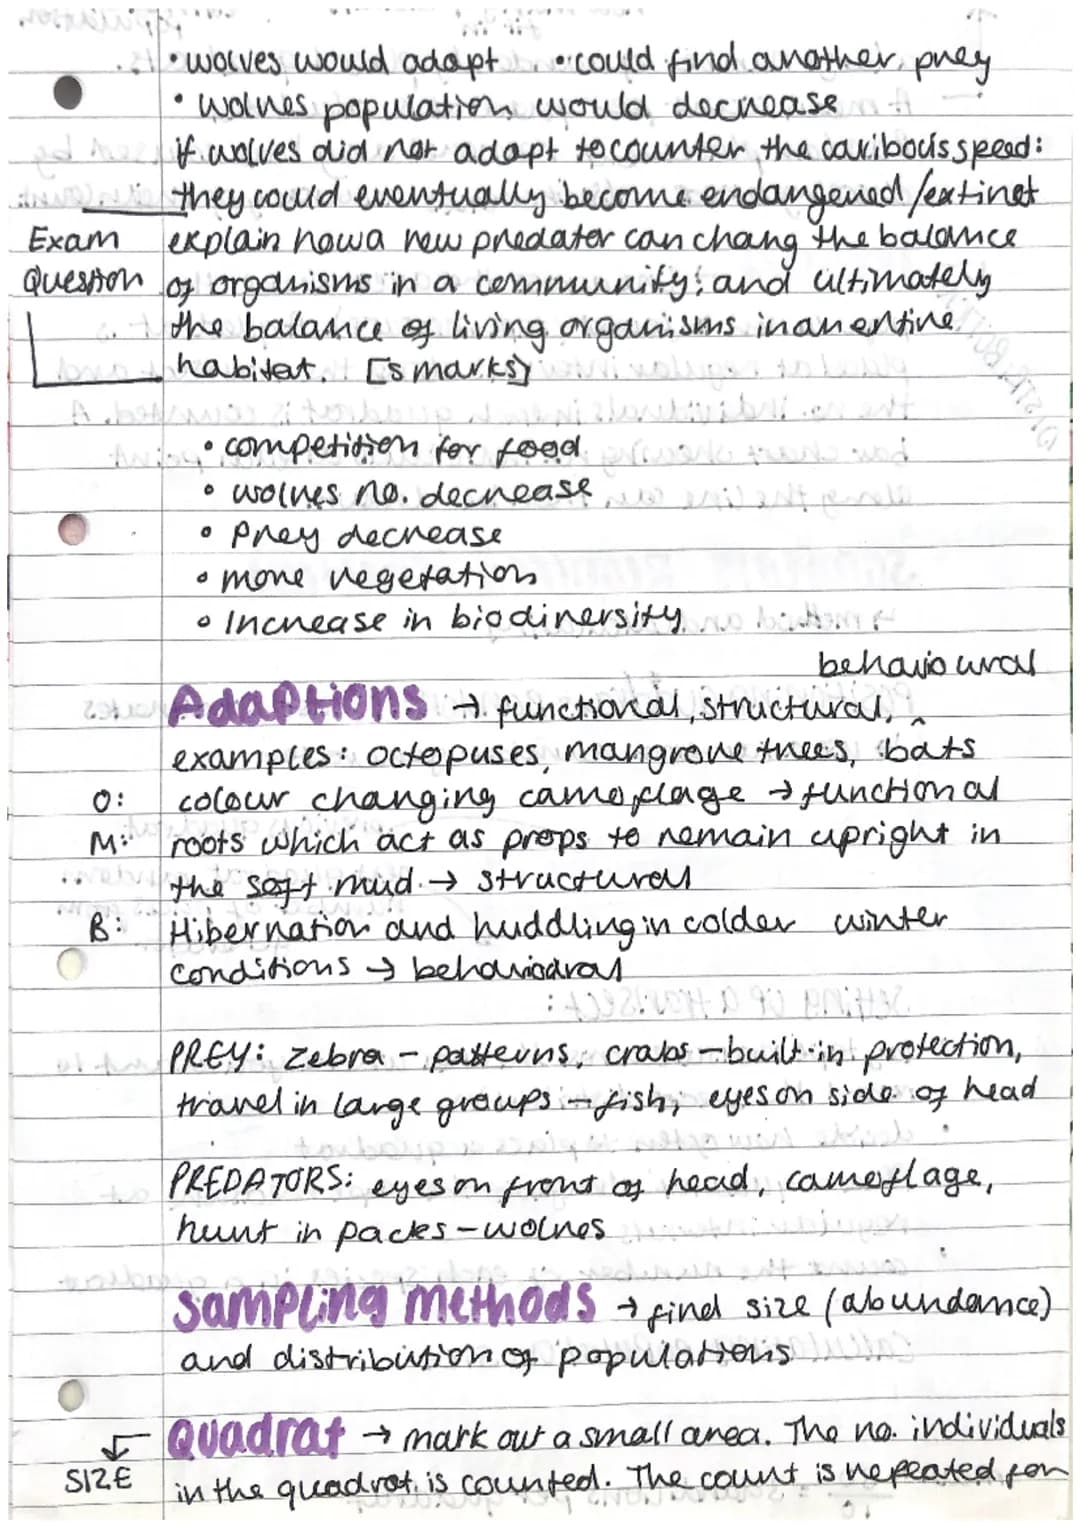 • wolves would adapt • could find another prey
• wolves population would decrease
if wolves did not adapt to counter the caribou's spead:
they could eventually become endangered /extinct
Exam explain how a new predator can chang the balance
Question of organisms in a community, and ultimately
the balance of living organisms in an entire
habitat. [5 marks]
• competition for food
• wolves no. decrease
• Prey decrease
• more vegetation
• Increase in biodiversity
behavioural
Adaptions → functional, structural, ^
examples: octopuses, mangrove trees, bats
O: colour changing camoflage → functional
M: roots which act as props to remain upright in
the soft mud. → structural
B: Hibernation and huddling in colder winter
conditions → behavioural
PREY: zebra - patterns, crabs - built-in protection,
travel in large groups - fish, eyes on side of head
PREDATORS: eyes on front of head, camoflage,
hunt in packs - wolves
Sampling methods → find size (abundance)
and distribution of populations
Quadrat → mark out a small area. The no. individuals
SIZE in the quadrat is counted. The count is repeated for